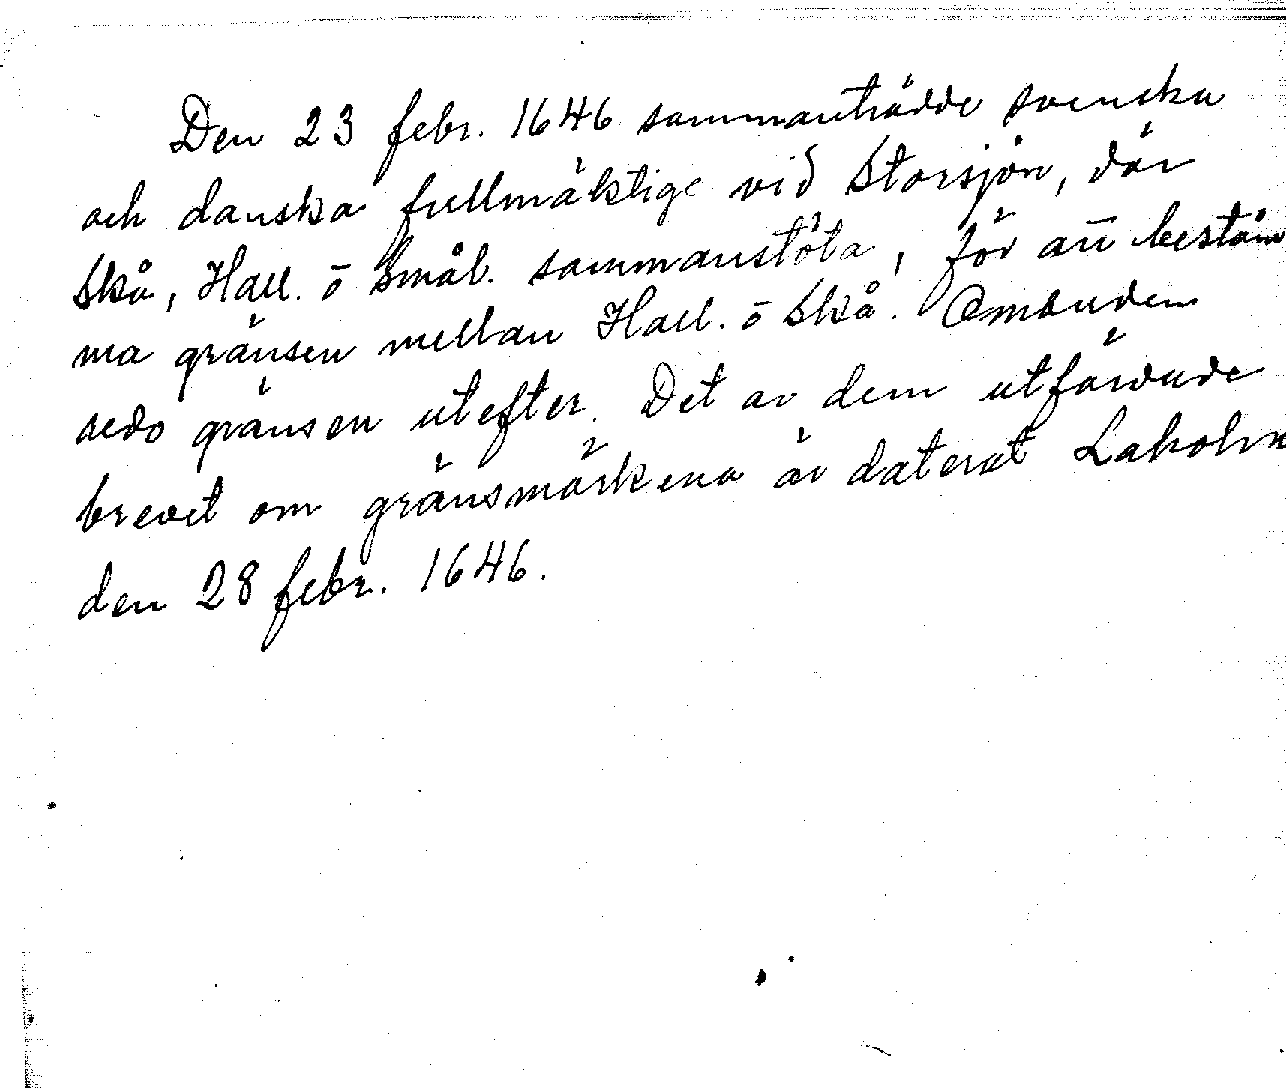 Den 23 febr. 1646 sammanträdde svenska
och danska fullmäktige vid Storsjön, där
Skå, Hall. o Smål. sammanstöta, för att bestäm
ma gränsen mellan Hall. o Skå. Ombuden
redo gränsen utefter. Det av dem utfärdade
brevet om gränsmärkena är daterat Laholm
den 28 febr. 1646.